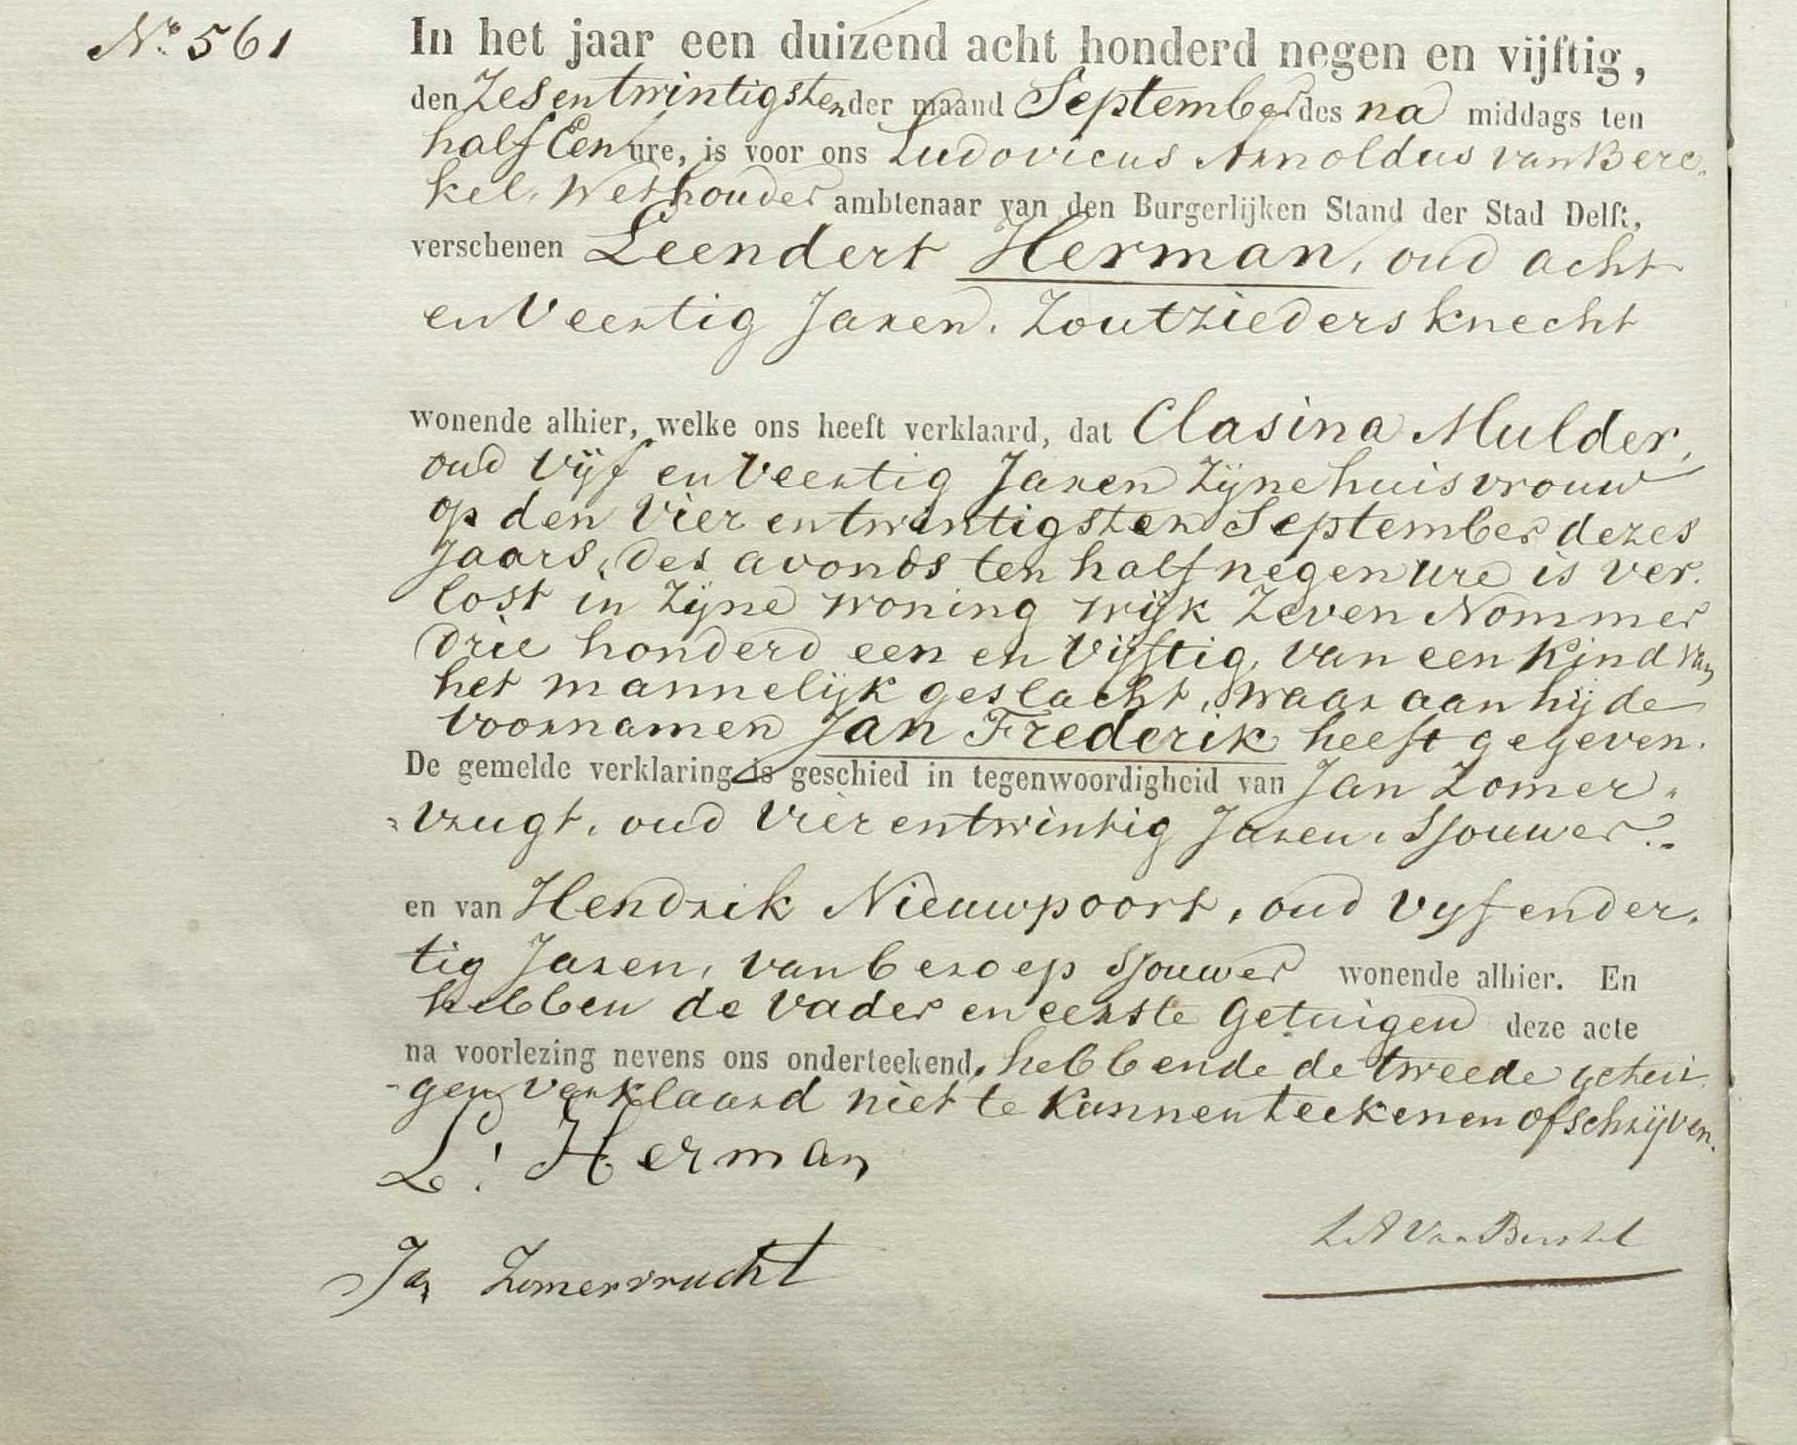 No. 561
In het jaar een duizend acht honderd negen en vijftig,
den Zesentwintigsten der maand September des na middags ten
half Een ure, is voor ons Ludovicus Arnoldus van Berc-
kel, Wethouder ambtenaar van den Burgerlijken Stand der Stad Delft,
verschenen Leendert Herman, oud acht
en Veertig Jaren, Zoutzieders knecht
wonende alhier, welke ons heeft verklaard, dat Clasina Mulder,
oud Vijf en Veertig Jaren Zijne huisvrouw
op den Vier en twintigsten September dezes
Jaars, des avonds ten half negen ure is ver-
lost in Zijne woning wijk Zeven Nommer
drie honderd een en Vijftig, van een Kind van
het mannelijk geslacht, waar aan hij de
voornamen Jan Frederik heeft gegeven.
De gemelde verklaring is geschied in tegenwoordigheid van Jan Zomer-
vrugt, oud Vier en twintig Jaren, Sjouwer
en van Hendrik Nieuwpoort, oud vyf en der-
tig Jaren, van beroep Sjouwer wonende alhier. En
hebben de Vader en eerste Getuigen deze acte
na voorlezing nevens ons onderteekend, hebbende de tweede getui-
gen verklaard niet te Kunnen teekenen of schrijven.
L. Herman
Jan Zomervrucht
L A van Berckel